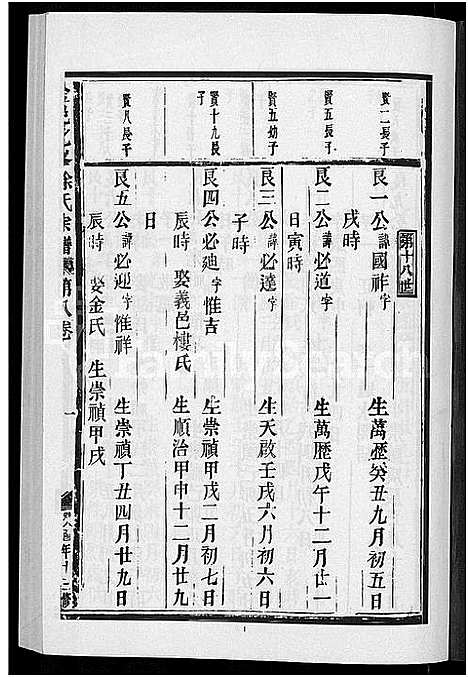 第十八世
賢二長子
良一公諱國祚字 生萬歷癸丑九月初五日
戌時
賢五長子
良二公諱必道字 生萬歷戊午十二月廿一
日寅時
賢五幼子
良三公諱必達字 生天啟壬戌六月初六日
子時
賢十九長
子
良四公諱必廸字惟吉 生崇禎甲戌二月初七日
辰時 娶義邑樓氏 生順治甲申十二月廿九
日
賢八長子
良五公諱必迎字惟祥 生崇禎丁丑四月廿九日
辰時 娶金氏 生崇禎甲戌
徐氏宗譜 第八卷 一